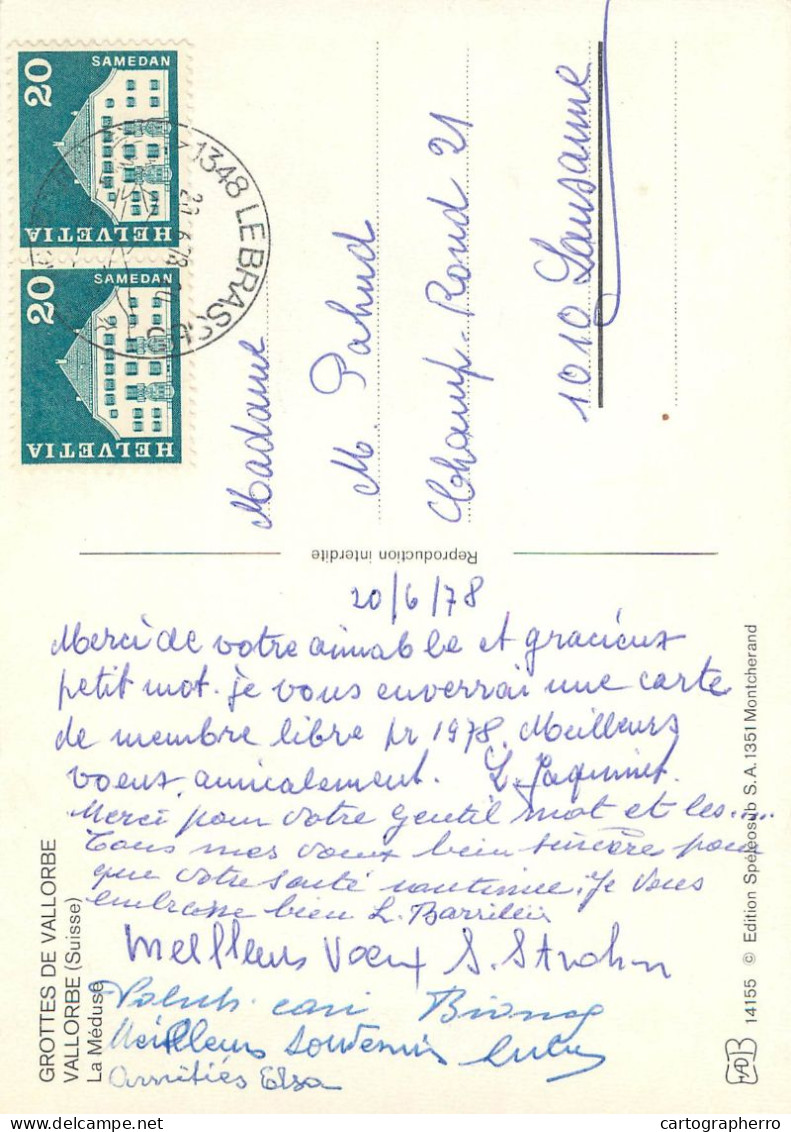 20
SAMEDAN
HELVETIA
20
SAMEDAN
HELVETIA
1348 LE BRASSUS
20.6.78
Madame
M. Pahud
Champ-Rond 21
1010 Lausanne
Reproduction interdite
20/6/78
Merci de votre aimable et gracieux
petit mot. je vous enverrai une carte
de membre libre pr 1978. Meilleurs
voeux, amicalement. L. Jaquinet.
Merci pour votre gentil mot et les.....
Tous mes voeux bien sincère pour
que votre santé continue. Je vous
embrasse bien L.
Meilleurs Voeux S.
Meilleurs souvenirs
Amitiés Elsa
GROTTES DE VALLORBE
VALLORBE (Suisse)
La Méduse
14155 © Edition Spéléosub S.A. 1351 Montcherand
cartographerro